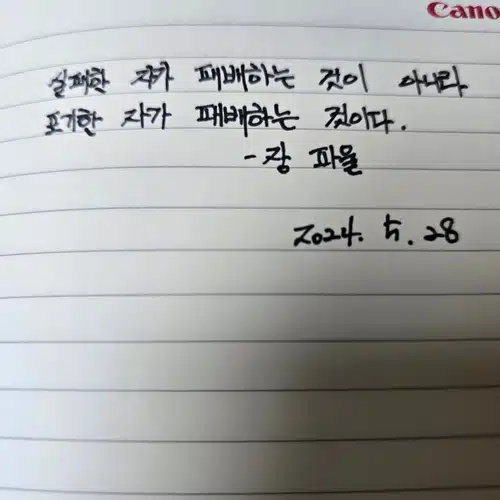 Cano
실패한 자가 패배하는 것이 아니라
포기한 자가 패배하는 것이다.
- 장 파울
2024. 5. 28